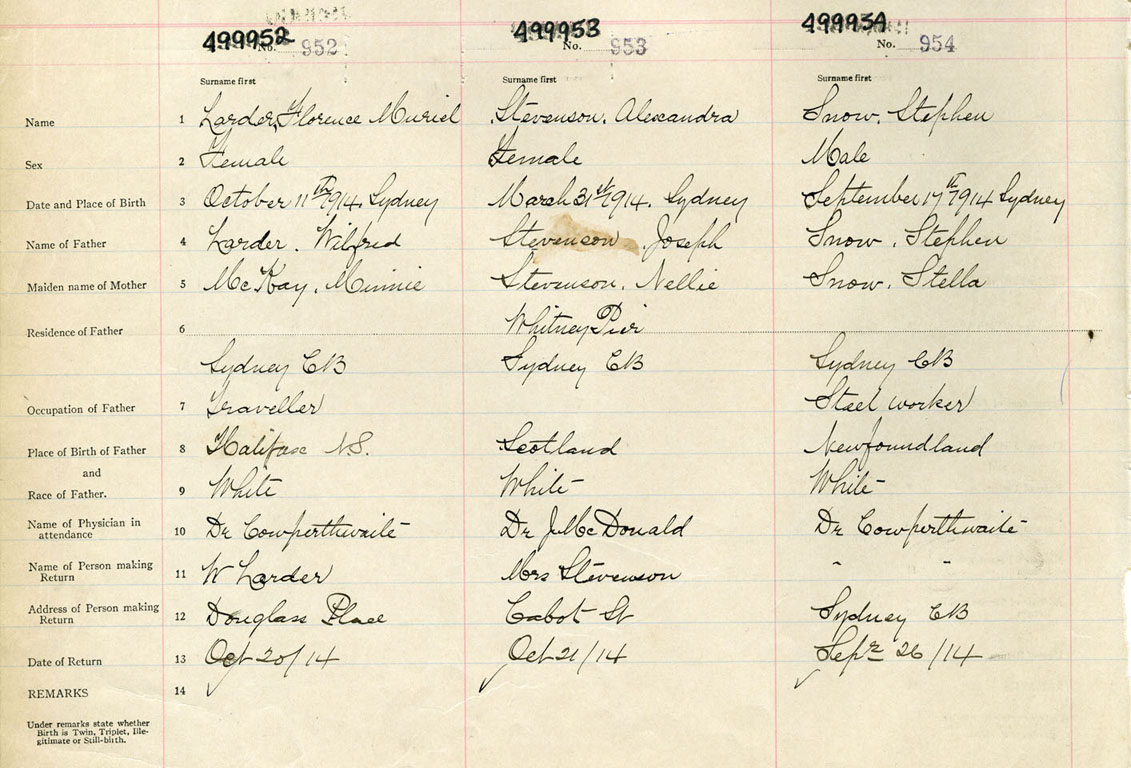 499952 499953 499954
No. 952 No. 953 No. 954
Surname first Surname first Surname first
Name 1 Larder, Florence Muriel Stevenson. Alexandra Snow. Stephen
Sex 2 Female Female Male
Date and Place of Birth 3 October 11th 1914. Sydney March 31st 1914. Sydney September 17th 1914 Sydney
Name of Father 4 Larder. Wilfred Stevenson. Joseph Snow. Stephen
Maiden name of Mother 5 McKay. Minnie Stevenson. Nellie Snow. Stella
Residence of Father 6 Whitney Pier
Sydney CB Sydney CB Sydney CB
Occupation of Father 7 Traveller Steel worker
Place of Birth of Father 8 Halifax N.S. Scotland Newfoundland
and
Race of Father. 9 White White White
Name of Physician in 10 Dr Cowperthwaite Dr J McDonald Dr Cowperthwaite
attendance
Name of Person making 11 W Larder Mrs Stevenson " "
Return
Address of Person making 12 Douglass Place Cabot St Sydney CB
Return
Date of Return 13 Oct 20/14 Oct 21/14 Sepr 26/14
REMARKS 14
Under remarks state whether
Birth is Twin, Triplet, Ille-
gitimate or Still-birth.